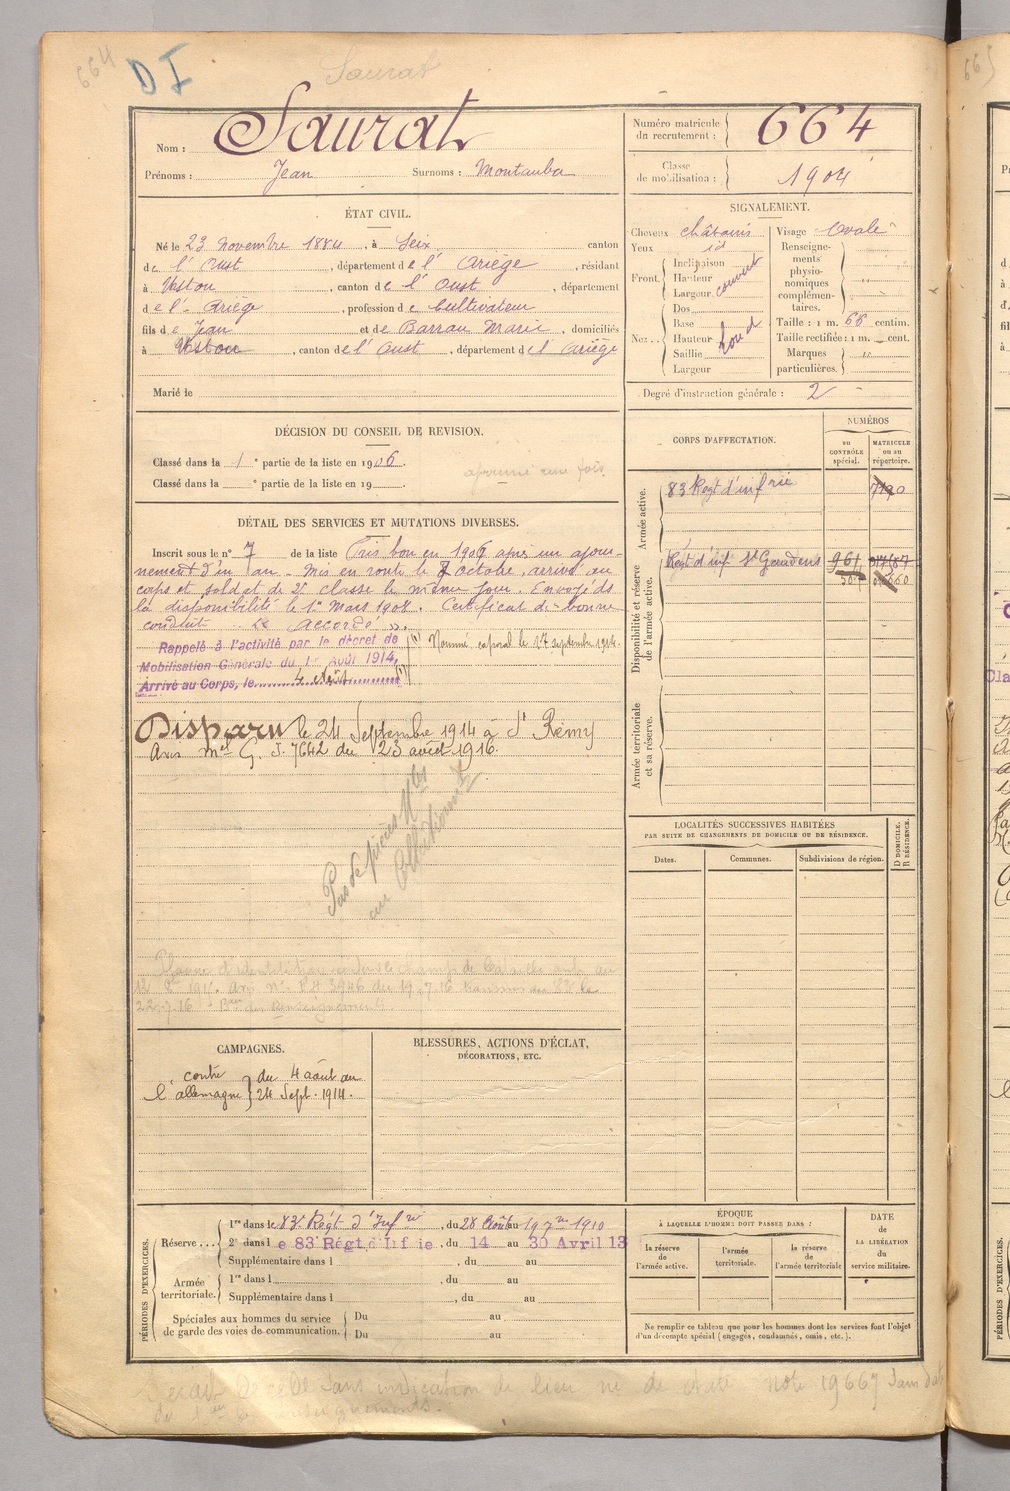 664
D I
Saurat
Nom : Saurat
Prénoms : Jean Surnoms : Montauba
Numéro matricule du recrutement : 664
Classe de mobilisation : 1904
ÉTAT CIVIL.
Né le 23 Novembre 1884, à Seix, canton
de l'Oust, département de l'Ariège, résidant
à Ustou, canton de l'Oust, département
de l'Ariège, profession de Cultivateur
fils de Jean et de Barrau Marie, domiciliés
à Ustou, canton de l'Oust, département de l'Ariège
Marié le
SIGNALEMENT.
Cheveux châtains
Yeux id
Front. Inclinaison Hauteur Largeur couvert
Nez.. Dos Base Hauteur Saillie Largeur
Visage Ovale
Renseignements physionomiques complémentaires.
Taille : 1 m. 66 centim.
Taille rectifiée : 1 m. cent.
Marques particulières.
Degré d'instruction générale : 2
DÉCISION DU CONSEIL DE REVISION.
Classé dans la 1e partie de la liste en 1906.
Classé dans la e partie de la liste en 19
ajourné une fois
DÉTAIL DES SERVICES ET MUTATIONS DIVERSES.
Inscrit sous le n° 7 de la liste Pris bon en 1906 après un ajour-
nement d'un an. Mis en route le 7 octobre, arrivé au
corps et soldat de 2e classe le même jour. Envoyé ds
la disponibilité le 1er Mars 1908. Certificat de bonne
conduite "Accordé".
Rappelé à l'activité par le décret de
Mobilisation Générale du 1er Août 1914,
Arrivé au Corps, le 4 août
(1) Nommé caporal le 17 septembre 1914.
Disparu le 24 Septembre 1914 à St Rémy
Avis mel G. J. 7642 du 23 avril 1916.
Pas de pièces Mles
au Collationnement
CORPS D'AFFECTATION.
NUMÉROS
au CONTRÔLE spécial.
MATRICULE ou au répertoire.
Armée active.
83 Regt d'infrie
Disponibilité et réserve de l'armée active.
Regt d'inf St Gaudens 961
Armée territoriale et sa réserve.
LOCALITÉS SUCCESSIVES HABITÉES
PAR SUITE DE CHANGEMENTS DE DOMICILE OU DE RÉSIDENCE.
Dates. Communes. Subdivisions de région. D DOMICILE. R RÉSIDENCE.
CAMPAGNES.
contre l'allemagne } du 4 août au 24 Sept. 1914.
BLESSURES, ACTIONS D'ÉCLAT,
DÉCORATIONS, ETC.
PÉRIODES D'EXERCICES.
Réserve...
1re dans le 83e Régt d'Infie, du 28 Août au 19 7bre 1910
2e dans le 83 Régt d'Infie, du 14 au 30 Avril 13
Supplémentaire dans l , du au
Armée territoriale.
1re dans l , du au
Supplémentaire dans l , du au
Spéciales aux hommes du service de garde des voies de communication.
Du au
Du au
ÉPOQUE
À LAQUELLE L'HOMME DOIT PASSER DANS :
la réserve de l'armée active.
l'armée territoriale.
la réserve de l'armée territoriale
DATE DE LA LIBÉRATION du service militaire.
Ne remplir ce tableau que pour les hommes dont les services font l'objet
d'un décompte spécial (engagés, condamnés, omis, etc.).
décédé sans indication de lieu ni de date note 19667 sans date
665